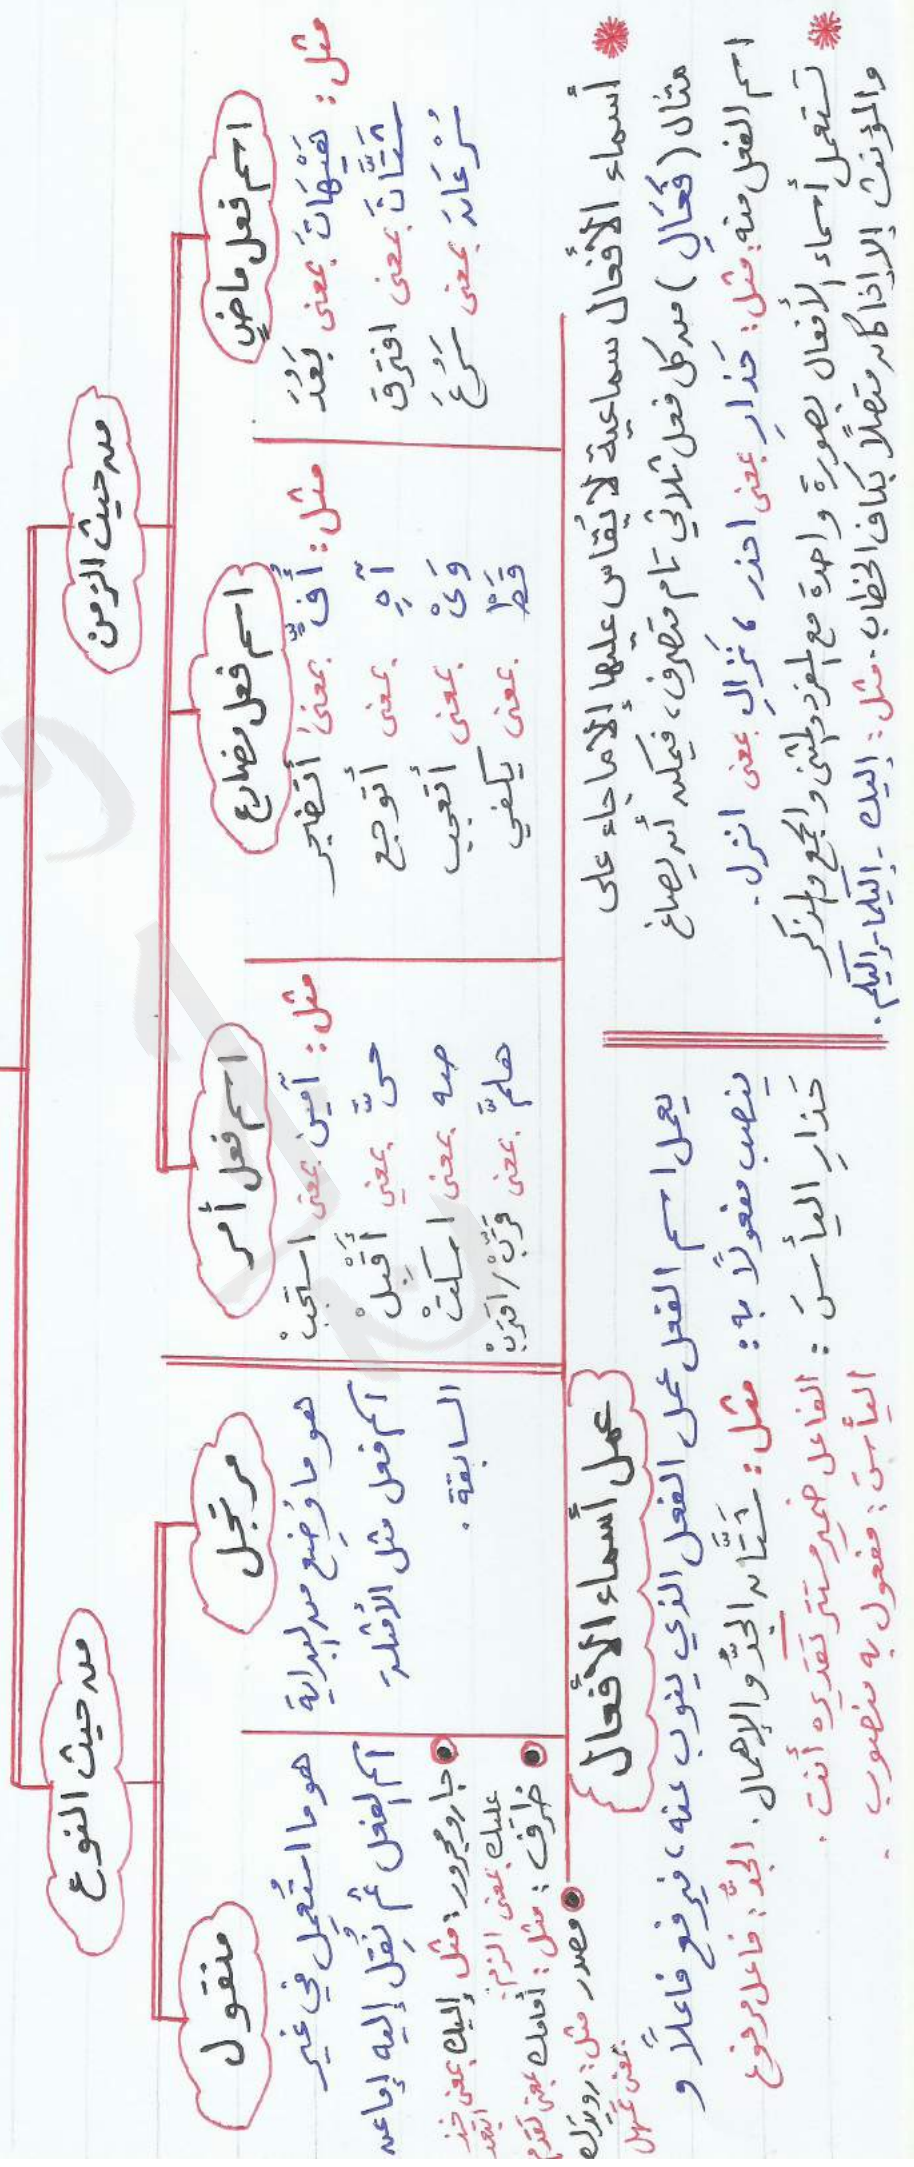 من حيث الزمن
اسم فعل ماضٍ
مثل: هَيْهَاتَ بمعنى بَعُدَ
شَتَّانَ بمعنى افترق
سُرْعَانَ بمعنى سَرُعَ
اسم فعل مضارع
مثل: أُفٍّ بمعنى أتضجر
آهِ بمعنى أتوجع
وَيْ بمعنى أتعجب
قَطْ بمعنى يكفي
اسم فعل أمر
مثل: آمين بمعنى استجبْ
حيَّ بمعنى أَقْبِلْ
صه بمعنى اسكتْ
هلمَّ بمعنى قَرِّبْ/اقتربْ
من حيث النوع
مرتجل
هو ما وُضِع من البداية
اسم فعل مثل الأمثلة
السابقة.
منقول
هو ما استُعمِل في غير
اسم الفعل ثم نُقِل إليه إما عن
جار ومجرور: مثل إليك بمعنى خذ
ابتعد
عليك بمعنى الزم.
ظرف: مثل: أمامك بمعنى تقدم
مصدر مثل: رويدك
بمعنى تمهل
أسماء الأفعال سماعية لا يُقاس عليها إلا ما جاء على
مثال (فَعَالِ) من كل فعل ثلاثي تام متصرف، فيمكن أن يصاغ
اسم الفعل منه: مثل: حَذَارِ بمعنى احذر، نَزَالِ بمعنى انزل.
تستعمل أسماء الأفعال بصورة واحدة مع المفرد والمثنى والجمع والمذكر
والمؤنث إلا إذا كان متصلًا بكاف الخطاب. مثل: إليك - إليكما - إليكم.
عمل أسماء الأفعال
يعمل اسم الفعل عمل الفعل الذي ينوب عنه، فيرفع فاعلًا و
ينصب مفعولًا به: مثل: شَتَّانَ الجدُّ والإهمال. الجدُّ: فاعل مرفوع
حَذَارِ اليأسَ: الفاعل ضمير مستتر تقديره أنت.
اليأسَ: مفعول به منصوب.